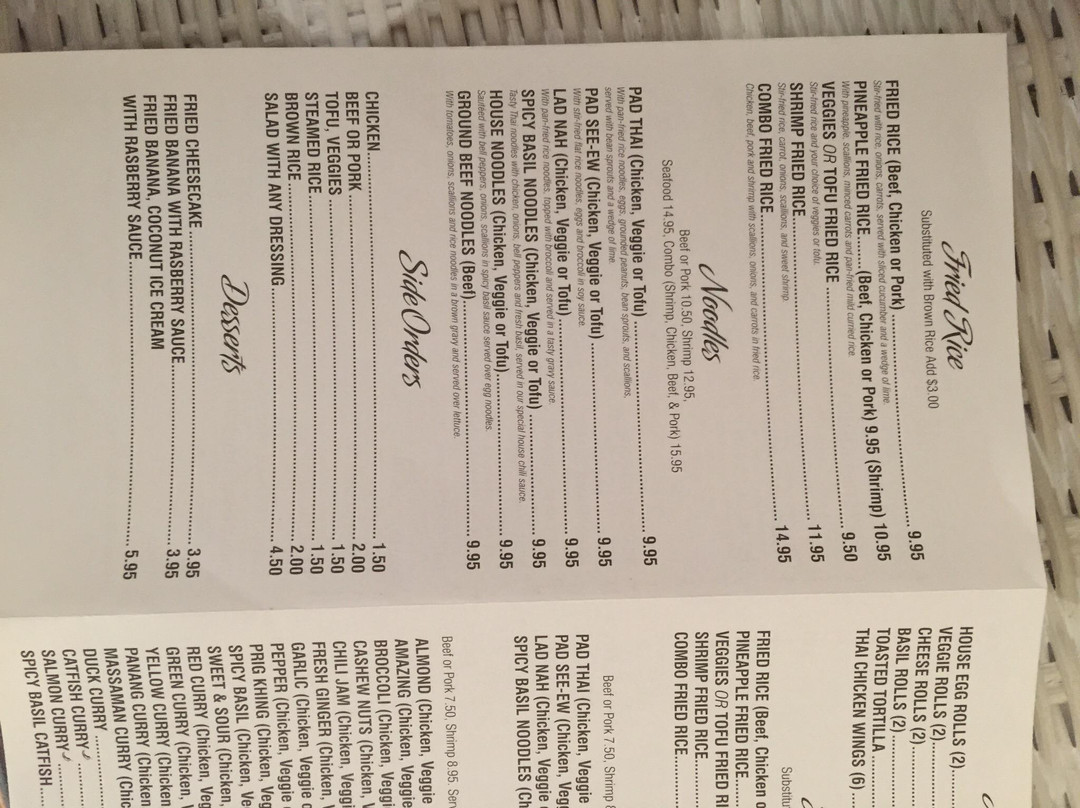 Fried Rice
Substituted with Brown Rice Add $3.00
FRIED RICE (Beef, Chicken or Pork) 9.95
Stir-fried with rice, onions, carrots, served with sliced cucumber and a wedge of lime.
PINEAPPLE FRIED RICE (Beef, Chicken or Pork) 9.95 (Shrimp) 10.95
With pineapple, scallions, minced carrots and pan-fried mild curried rice.
VEGGIES OR TOFU FRIED RICE 9.50
Stir-fried rice and your choice of veggies or tofu.
SHRIMP FRIED RICE 11.95
Stir-fried rice, carrot, onions, scallions, and sweet shrimp.
COMBO FRIED RICE 14.95
Chicken, beef, pork and shrimp with scallions, onions, and carrots in fried rice.
Noodles
Beef or Pork 10.50, Shrimp 12.95,
Seafood 14.95, Combo (Shrimp, Chicken, Beef, & Pork) 15.95
PAD THAI (Chicken, Veggie or Tofu) 9.95
With pan-fried rice noodles, eggs, grounded peanuts, bean sprouts, and scallions,
served with bean sprouts and a wedge of lime.
PAD SEE-EW (Chicken, Veggie or Tofu) 9.95
With stir-fried flat rice noodles, eggs and broccoli in soy sauce.
LAD NAH (Chicken, Veggie or Tofu) 9.95
With pan-fried rice noodles, topped with broccoli and served in a tasty gravy sauce.
SPICY BASIL NOODLES (Chicken, Veggie or Tofu) 9.95
Tasty Thai noodles with chicken, onions, bell peppers and fresh basil, served in our special house chili sauce.
HOUSE NOODLES (Chicken, Veggie or Tofu) 9.95
Sautéed with bell peppers, onions, scallions in spicy basil sauce served over egg noodles.
GROUND BEEF NOODLES (Beef) 9.95
With tomatoes, onions, scallions and rice noodles in a brown gravy and served over lettuce.
Side Orders
CHICKEN 1.50
BEEF OR PORK 2.00
TOFU, VEGGIES 1.50
STEAMED RICE 1.50
BROWN RICE 2.00
SALAD WITH ANY DRESSING 4.50
Desserts
FRIED CHEESECAKE 3.95
FRIED BANANA WITH RASBERRY SAUCE 3.95
FRIED BANANA, COCONUT ICE CREAM
WITH RASBERRY SAUCE 5.95
HOUSE EGG ROLLS (2)
VEGGIE ROLLS (2)
CHEESE ROLLS (2)
BASIL ROLLS (2)
TOASTED TORTILLA
THAI CHICKEN WINGS (6)
Substitu
FRIED RICE (Beef, Chicken o
PINEAPPLE FRIED RICE
VEGGIES OR TOFU FRIED RI
SHRIMP FRIED RICE
COMBO FRIED RICE
Beef or Pork 7.50, Shrimp 8
PAD THAI (Chicken, Veggie
PAD SEE-EW (Chicken, Veg
LAD NAH (Chicken, Veggie
SPICY BASIL NOODLES (Ch
Beef or Pork 7.50, Shrimp 8.95, Ser
ALMOND (Chicken, Veggie
AMAZING (Chicken, Veggie
BROCCOLI (Chicken, Veggi
CASHEW NUTS (Chicken, V
CHILI JAM (Chicken, Veggie
FRESH GINGER (Chicken, V
GARLIC (Chicken, Veggie o
PEPPER (Chicken, Veggie
PRIG KHING (Chicken, Veg
SPICY BASIL (Chicken, Ve
SWEET & SOUR (Chicken,
RED CURRY (Chicken, Veg
GREEN CURRY (Chicken, V
YELLOW CURRY (Chicken
PANANG CURRY (Chicken
MASSAMAN CURRY (Chic
DUCK CURRY
CATFISH CURRY
SALMON CURRY
SPICY BASIL CATFISH